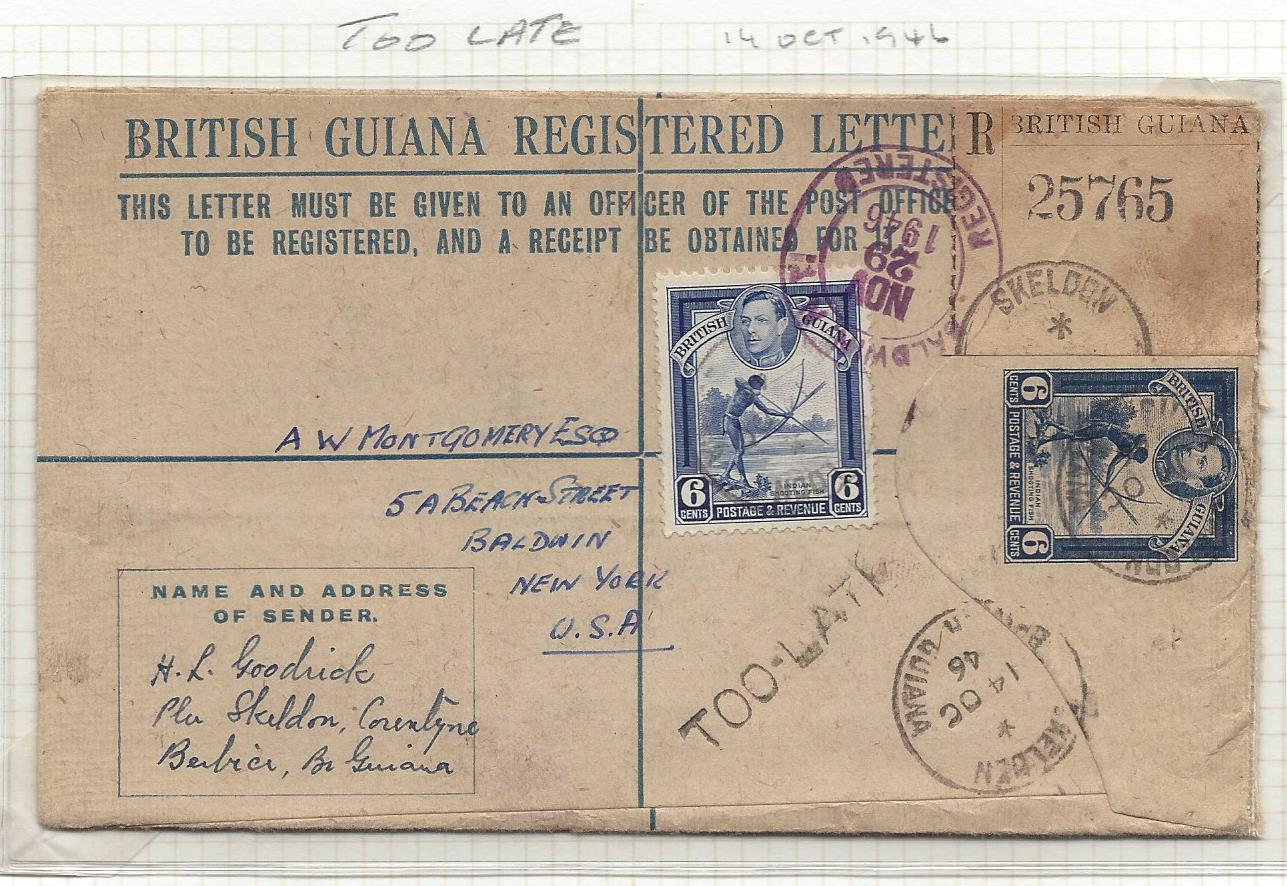 TOO LATE 14 OCT 1946
BRITISH GUIANA REGISTERED LETTER
BRITISH GUIANA
25765
THIS LETTER MUST BE GIVEN TO AN OFFICER OF THE POST OFFICE
TO BE REGISTERED, AND A RECEIPT BE OBTAINED FOR IT.
REGISTERED
NOV
29
1946
SKELDON
BRITISH GUIANA
INDIAN
SHOOTING FISH
6 CENTS POSTAGE & REVENUE 6 CENTS
BRITISH GUIANA
INDIAN
SHOOTING FISH
6 CENTS POSTAGE & REVENUE 6 CENTS
A W MONTGOMERY ESQ
5A BEACH STREET
BALDWIN
NEW YORK
U.S.A
NAME AND ADDRESS
OF SENDER.
H. L. Goodrick
Pln Skeldon, Corentyne
Berbice, Br Guiana
TOO-LATE
SKELDEN
14 OC
46
GUIANA